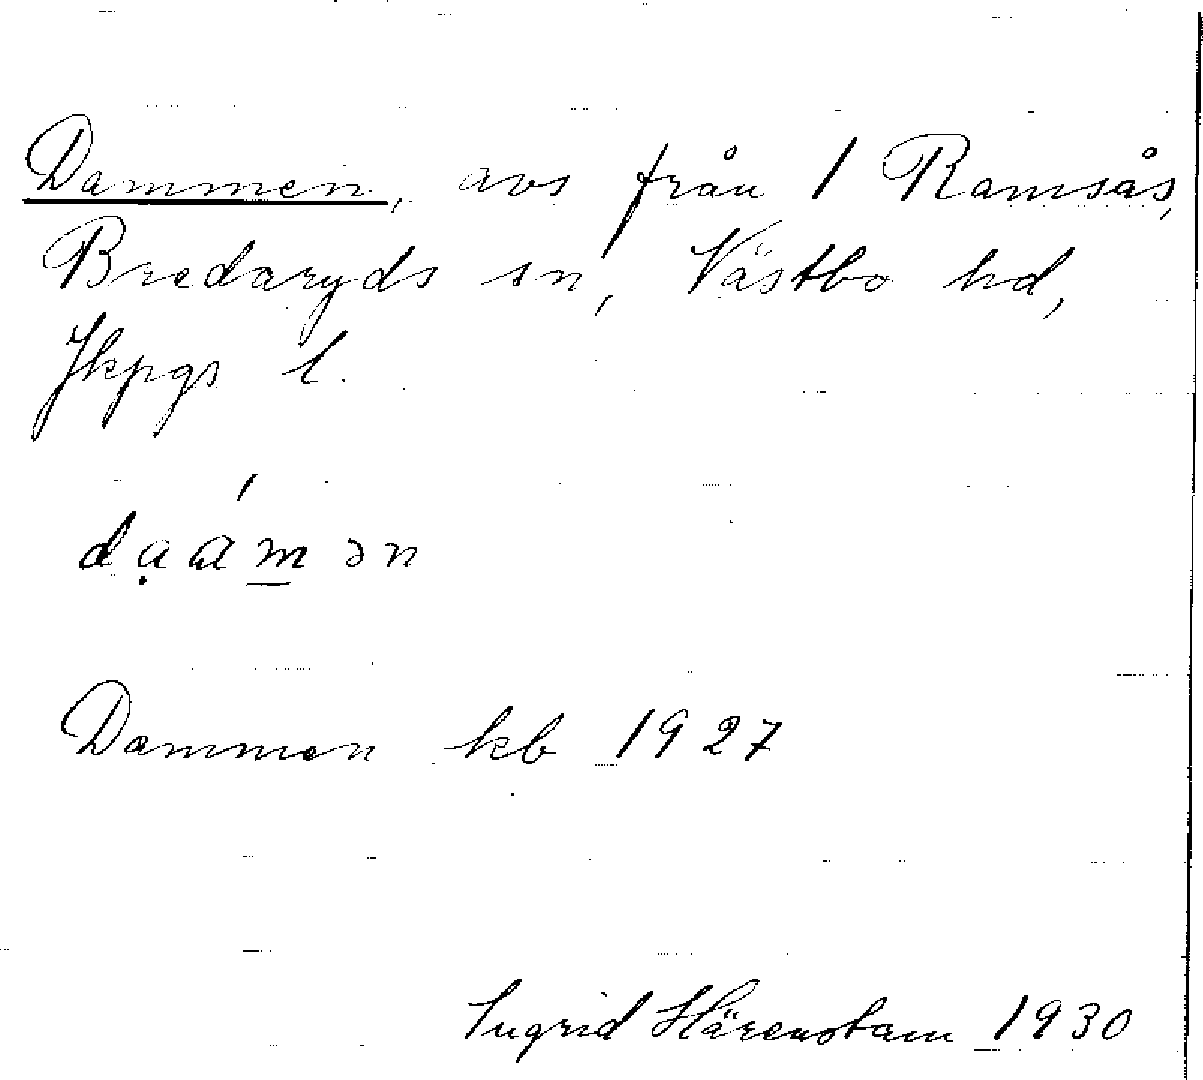 Dammen, avs från 1 Ramsås,
Bredaryds sn, Västbo hd,
Jkpgs l.
dạám̲ən
Dammen kb 1927
Ingrid Härenstam 1930